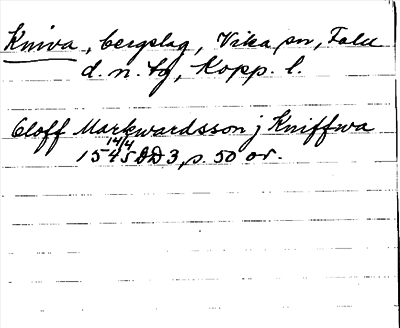 Kniva, bergslag, Vika sn, Falu
d. n. tg, Kopp. l.
Oloff Markwardsson j Kniffwa
14/4
1545 DD 3, s. 50 or.